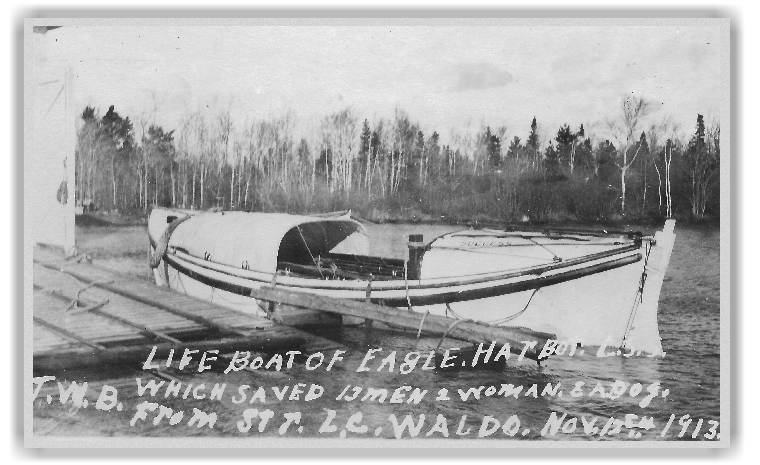 LIFE BOAT OF EAGLE. HARBOR. L.S.S.
T.W.B. WHICH SAVED 13 MEN 2 WOMAN. & A DOG.
FROM STR. L.C. WALDO. NOV. 1913.